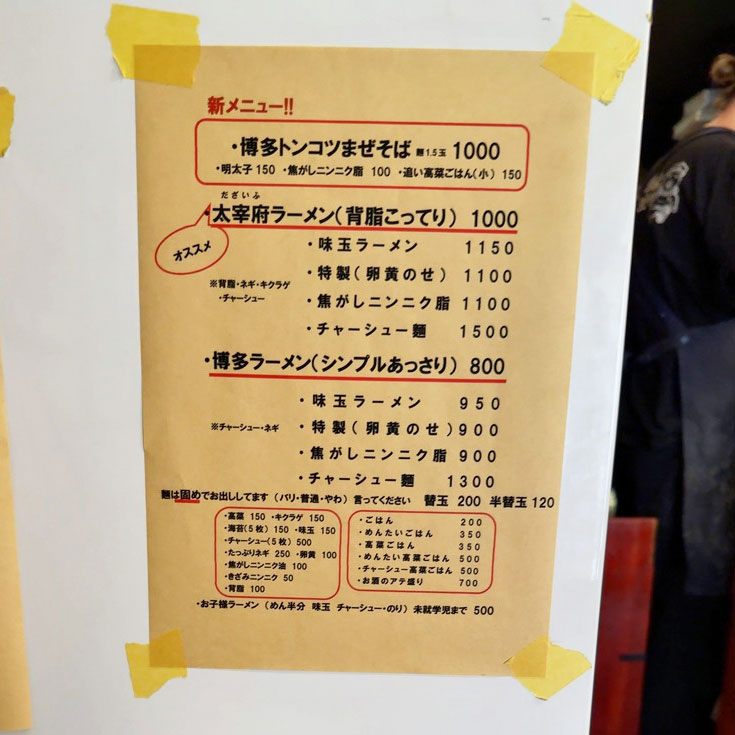 新メニュー!!
・博多トンコツまぜそば 麺1.5玉 1000
・明太子 150 ・焦がしニンニク脂 100 ・追い高菜ごはん(小) 150
だざいふ
・太宰府ラーメン(背脂こってり) 1000
オススメ
・味玉ラーメン 1150
・特製(卵黄のせ) 1100
※背脂・ネギ・キクラゲ
・チャーシュー
・焦がしニンニク脂 1100
・チャーシュー麺 1500
・博多ラーメン(シンプルあっさり) 800
・味玉ラーメン 950
※チャーシュー・ネギ
・特製(卵黄のせ) 900
・焦がしニンニク脂 900
・チャーシュー麺 1300
麺は固めでお出ししてます (バリ・普通・やわ) 言ってください 替玉 200 半替玉 120
・高菜 150 ・キクラゲ 150
・海苔(5枚) 150 ・味玉 150
・チャーシュー(5枚) 500
・たっぷりネギ 250 ・卵黄 100
・焦がしニンニク油 100
・きざみニンニク 50
・背脂 100
・ごはん 200
・めんたいごはん 350
・高菜ごはん 350
・めんたい高菜ごはん 500
・チャーシュー高菜ごはん 500
・お酒のアテ盛り 700
・お子様ラーメン (めん半分 味玉 チャーシュー・のり) 未就学児まで 500